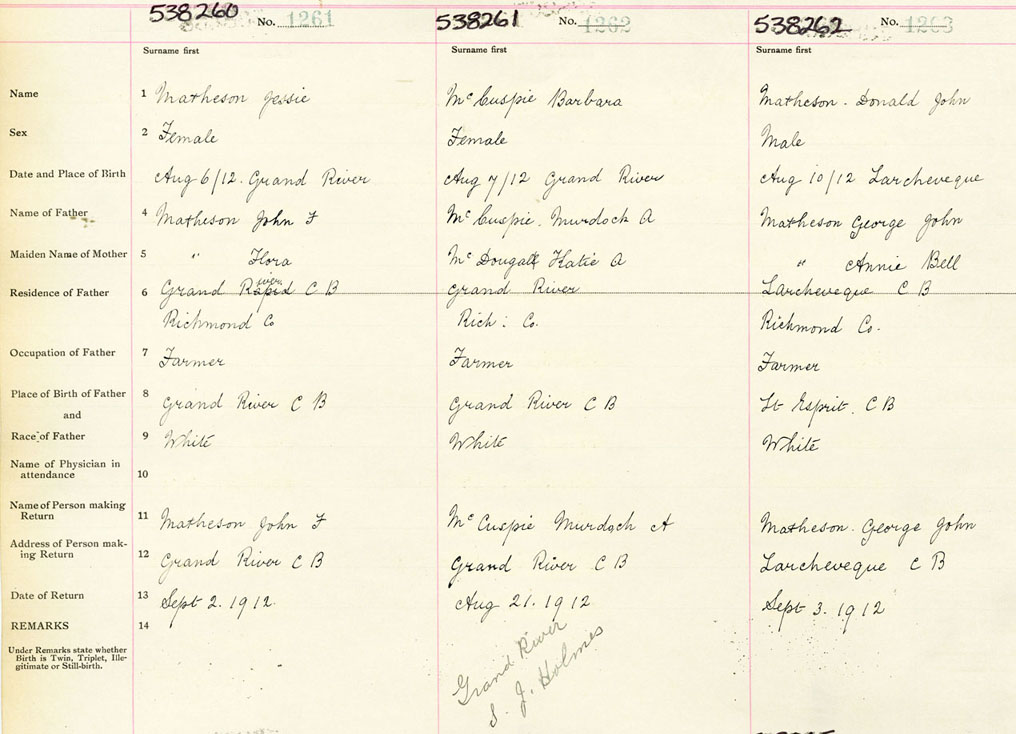 538260 No. 1261 538261 No. 1262 538262 No. 1263
Surname first Surname first Surname first
Name 1 Matheson Jessie McCuspie Barbara Matheson. Donald John
Sex 2 Female Female Male
Date and Place of Birth Aug 6/12. Grand River Aug 7/12 Grand River Aug 10/12 Larcheveque
Name of Father 4 Matheson John F McCuspie. Murdock A Matheson George John
Maiden Name of Mother 5 " Flora McDougall Katie A " Annie Bell
iver
Residence of Father 6 Grand Rapid C B Grand River Larcheveque C B
Richmond Co Rich: Co. Richmond Co.
Occupation of Father 7 Farmer Farmer Farmer
Place of Birth of Father 8 Grand River C B Grand River C B St Esprit. C B
and
Race of Father 9 White White White
Name of Physician in
attendance 10
Name of Person making
Return 11 Matheson John F McCuspie Murdoch A Matheson. George John
Address of Person mak-
ing Return 12 Grand River C B Grand River C B Larcheveque C B
Date of Return 13 Sept 2. 1912. Aug 21. 1912 Sept 3. 1912
REMARKS 14
Under Remarks state whether
Birth is Twin, Triplet, Ille-
gitimate or Still-birth.
Grand River
S. J. Holmes